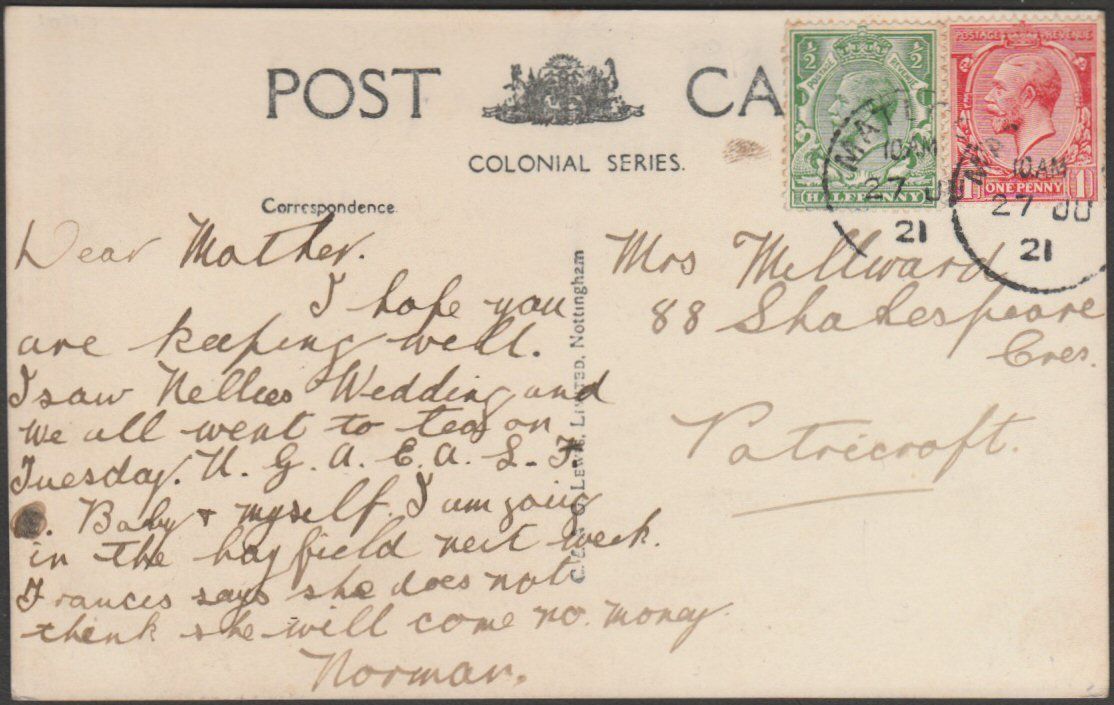 POST CA
COLONIAL SERIES.
Correspondence.
1/2 1/2
POSTAGE REVENUE
HALFPENNY
POSTAGE REVENUE
1 ONE PENNY 1
MATL
10.AM
27 JU
21
MAT
10.AM
27 JU
21
Dear Mother.
I hope you
are keeping well.
I saw Nellies Wedding and
we all went to tea on
Tuesday. U. G. A. E. A. L. F
Baby + myself. I am going
in the hayfield next week.
Frances says she does not
think she will come no money
Norman.
LEWIS, LIMITED, Nottingham
Mrs Millward
88 Shakespeare
Cres.
Patricroft.